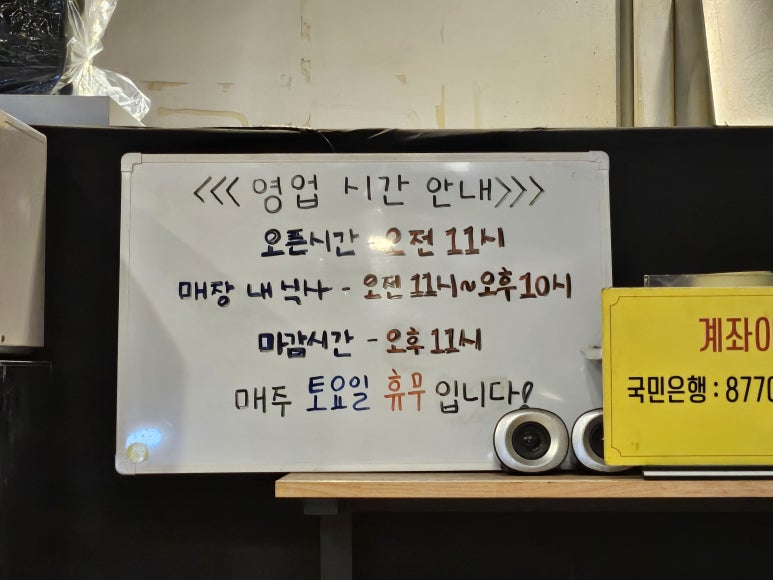 <<< 영업 시간 안내>>>
오픈시간 - 오전 11시
매장 내 식사 - 오전 11시~오후 10시
마감시간 - 오후 11시
매주 토요일 휴무 입니다!
계좌이
국민은행 : 8770